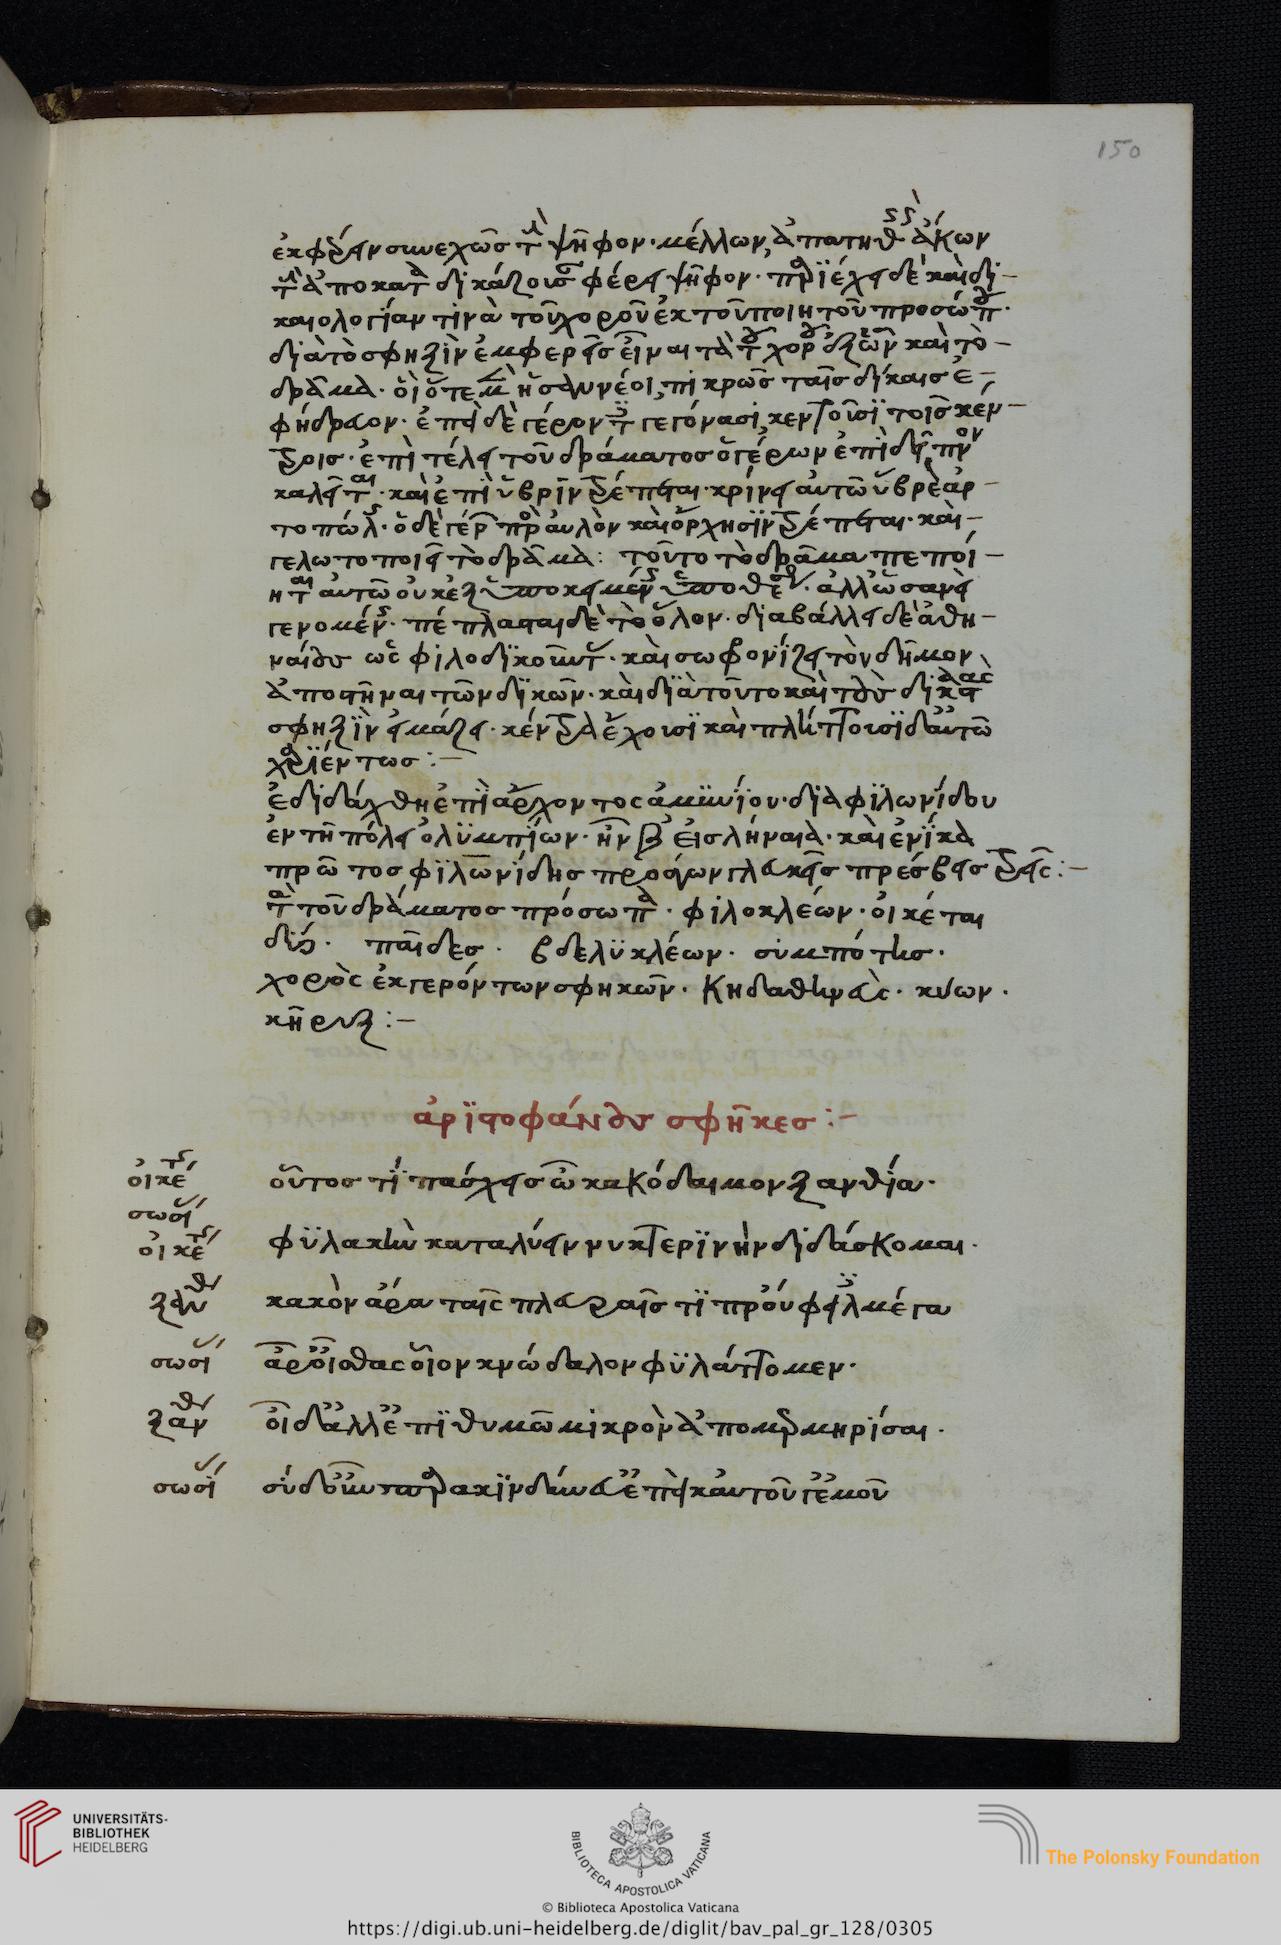 150
ἐκφέρειν συνεχῶς τὴν ψῆφον· μέλλων, ἀπατηθεὶς ἄκων
τὴν ἀποκατ δικάζουσαν φέρει ψῆφον· περιέχει δὲ καὶ δι-
καιολογίαν τινὰ τοῦ χοροῦ ἐκ τοῦ ποιητοῦ προσώπου·
διὰ τὸ σφηξὶν ἐμφερεῖς εἶναι τὰ τοῦ χοροῦ ἐξ ὧν καὶ τὸ-
δρᾶμα· οἳ ὅτε μὲν ἦσαν νέοι, πικρῶς ταῖς δίκαις ἐ-
φήδρευον· ἐπεὶ δὲ γέροντες γεγόνασι, κεντοῦσι τοῖς κέν-
τροις· ἐπὶ τέλει τοῦ δράματος ὁ γέρων ἐπὶ δεῖπνον
καλεῖται· καὶ ἐπὶ ὕβριν τρέπεται· κρίνει αὐτῶ ὕβρεὰρ-
τοπώλις· ὁ δὲ γέρων πρὸς αὐλὸν καὶ ὄρχησιν τρέπεται· καὶ-
γελωτοποιεῖ τὸ δρᾶμα: τοῦτο τὸ δρᾶμα πεποί-
ηται αὐτῶ οὐκ ἐξ ὑποκειμένης ὑποθέσεως· ἀλλ' ὡσανεὶ
γενομένης· πέπλασται δὲ τὸ ὅλον· διαβάλλει δὲ ἀθη-
ναίους ὡς φιλοδικοῦντας· καὶ σωφρονίζει τὸν δῆμον
ἀποστῆναι τῶν δικῶν· καὶ διὰ τοῦτο καὶ τοὺς δικαστὰς
σφηξὶν εἰκάζει· κέντρα ἔχουσι καὶ πλήττουσι δ' αὐτῶ
χαριέντως:-
ἐδιδάχθη ἐπὶ ἄρχοντος ἀμινίου· διὰ φιλωνίδου
ἐν τῆ πόλει ὀλυμπίων· ἦν β εἰς λήναια· καὶ ἐνίκα
πρῶτος φιλωνίδης προάγων γλαυκεὺς πρέσβεις τρεῖς:-
τὰ τοῦ δράματος πρόσωπα· φιλοκλέων· οἰκέται
δύο· παῖδες· βδελυκλέων· συμπότης·
χορὸς ἐκ γερόντων σφηκῶν· κηδαθηνεύς· κύων·
κῆρυξ:-
ἀριστοφάνους σφῆκες:-
οἰκέτης σωσί οὗτος τί πάσχεις ὦ κακόδαιμον ξανθία·
οἰκέτης φυλακὴν καταλύειν νυκτερινὴν διδάσκομαι·
ξανθ κακὸν ἄρα ταῖς πλευραῖς τι προύφείλεις μέγα
σωσί ἆρ' οἶσθας οἷον κνώδαλον φυλάττομεν·
ξανθ οἶδ' ἀλλ' ἐπιθυμῶ μικρὸν ἀπομερμηρίσαι·
σωσί σὺ δ' οὖν παρακινδύνευ' ἐπεὶ καὐτοῦ γ' ἐμοῦ
UNIVERSITÄTS-
BIBLIOTHEK
HEIDELBERG
BIBLIOTECA APOSTOLICA VATICANA
The Polonsky Foundation
© Biblioteca Apostolica Vaticana
https://digi.ub.uni-heidelberg.de/diglit/bav_pal_gr_128/0305